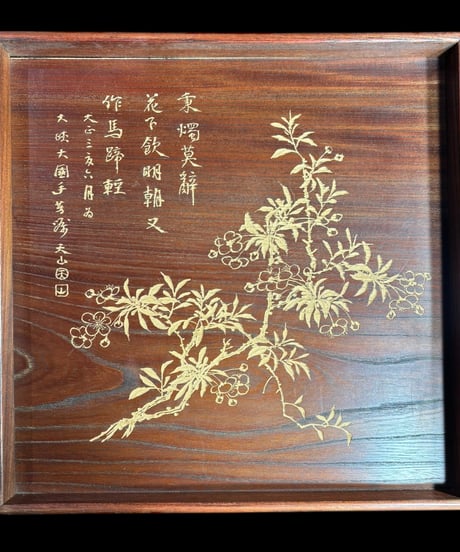 秉燭莫辭
花下飲明朝又
作馬蹄輕
大正亥六月為
大大國手天山